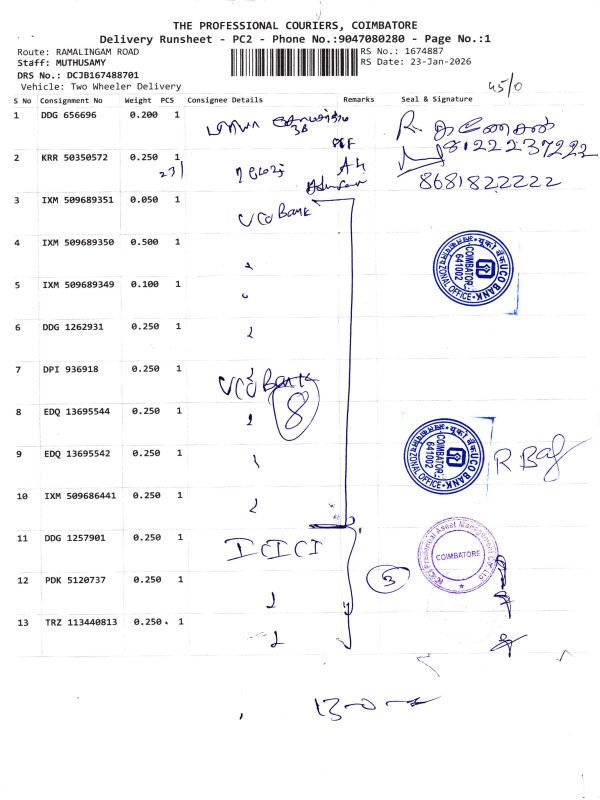 THE PROFESSIONAL COURIERS, COIMBATORE
Delivery Runsheet - PC2 - Phone No.:9047080280 - Page No.:1
Route: RAMALINGAM ROAD
RS No.: 1674887
Staff: MUTHUSAMY
RS Date: 23-Jan-2026
DRS No.: DCJB167488701
Vehicle: Two Wheeler Delivery
45/0
S No Consignment No Weight PCS Consignee Details Remarks Seal & Signature
1 DDG 656696 0.200 1
8122237222
2 KRR 50350572 0.250 1
231
8681822222
3 IXM 509689351 0.050 1 UCO Bank
4 IXM 509689350 0.500 1
UCO BANK ZONAL OFFICE COIMBATORE 641002
5 IXM 509689349 0.100 1
6 DDG 1262931 0.250 1
7 DPI 936918 0.250 1 UCO Bank
8
8 EDQ 13695544 0.250 1
9 EDQ 13695542 0.250 1
UCO BANK ZONAL OFFICE COIMBATORE 641002
10 IXM 509686441 0.250 1
11 DDG 1257901 0.250 1 ICICI
ICICI Prudential Asset Management Co. Ltd COIMBATORE
12 PDK 5120737 0.250 1
3
13 TRZ 113440813 0.250 1
13-0-